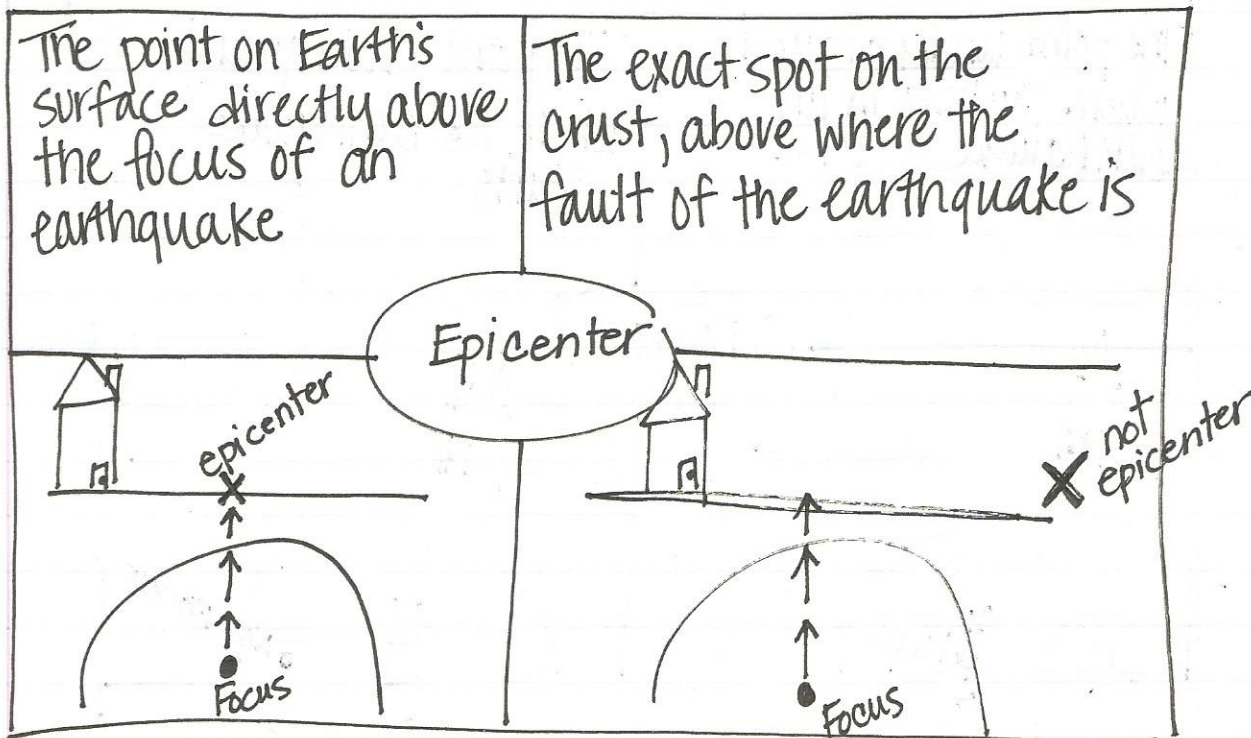 The point on Earth's
surface directly above
the focus of an
earthquake
The exact spot on the
crust, above where the
fault of the earthquake is
Epicenter
epicenter
Focus
not
epicenter
Focus